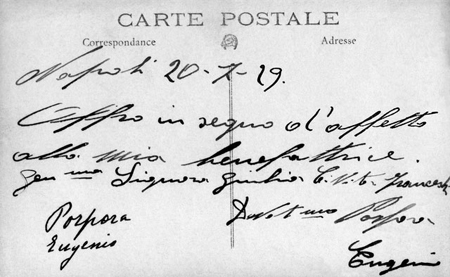 CARTE POSTALE
Correspondance Adresse
Napoli 20-7-29.
Offro in segno d'affetto
alla mia benefattrice.
Gen ma Signora Giulia
Porpora
Eugenio
Dev t mo Porpora
Eugenio